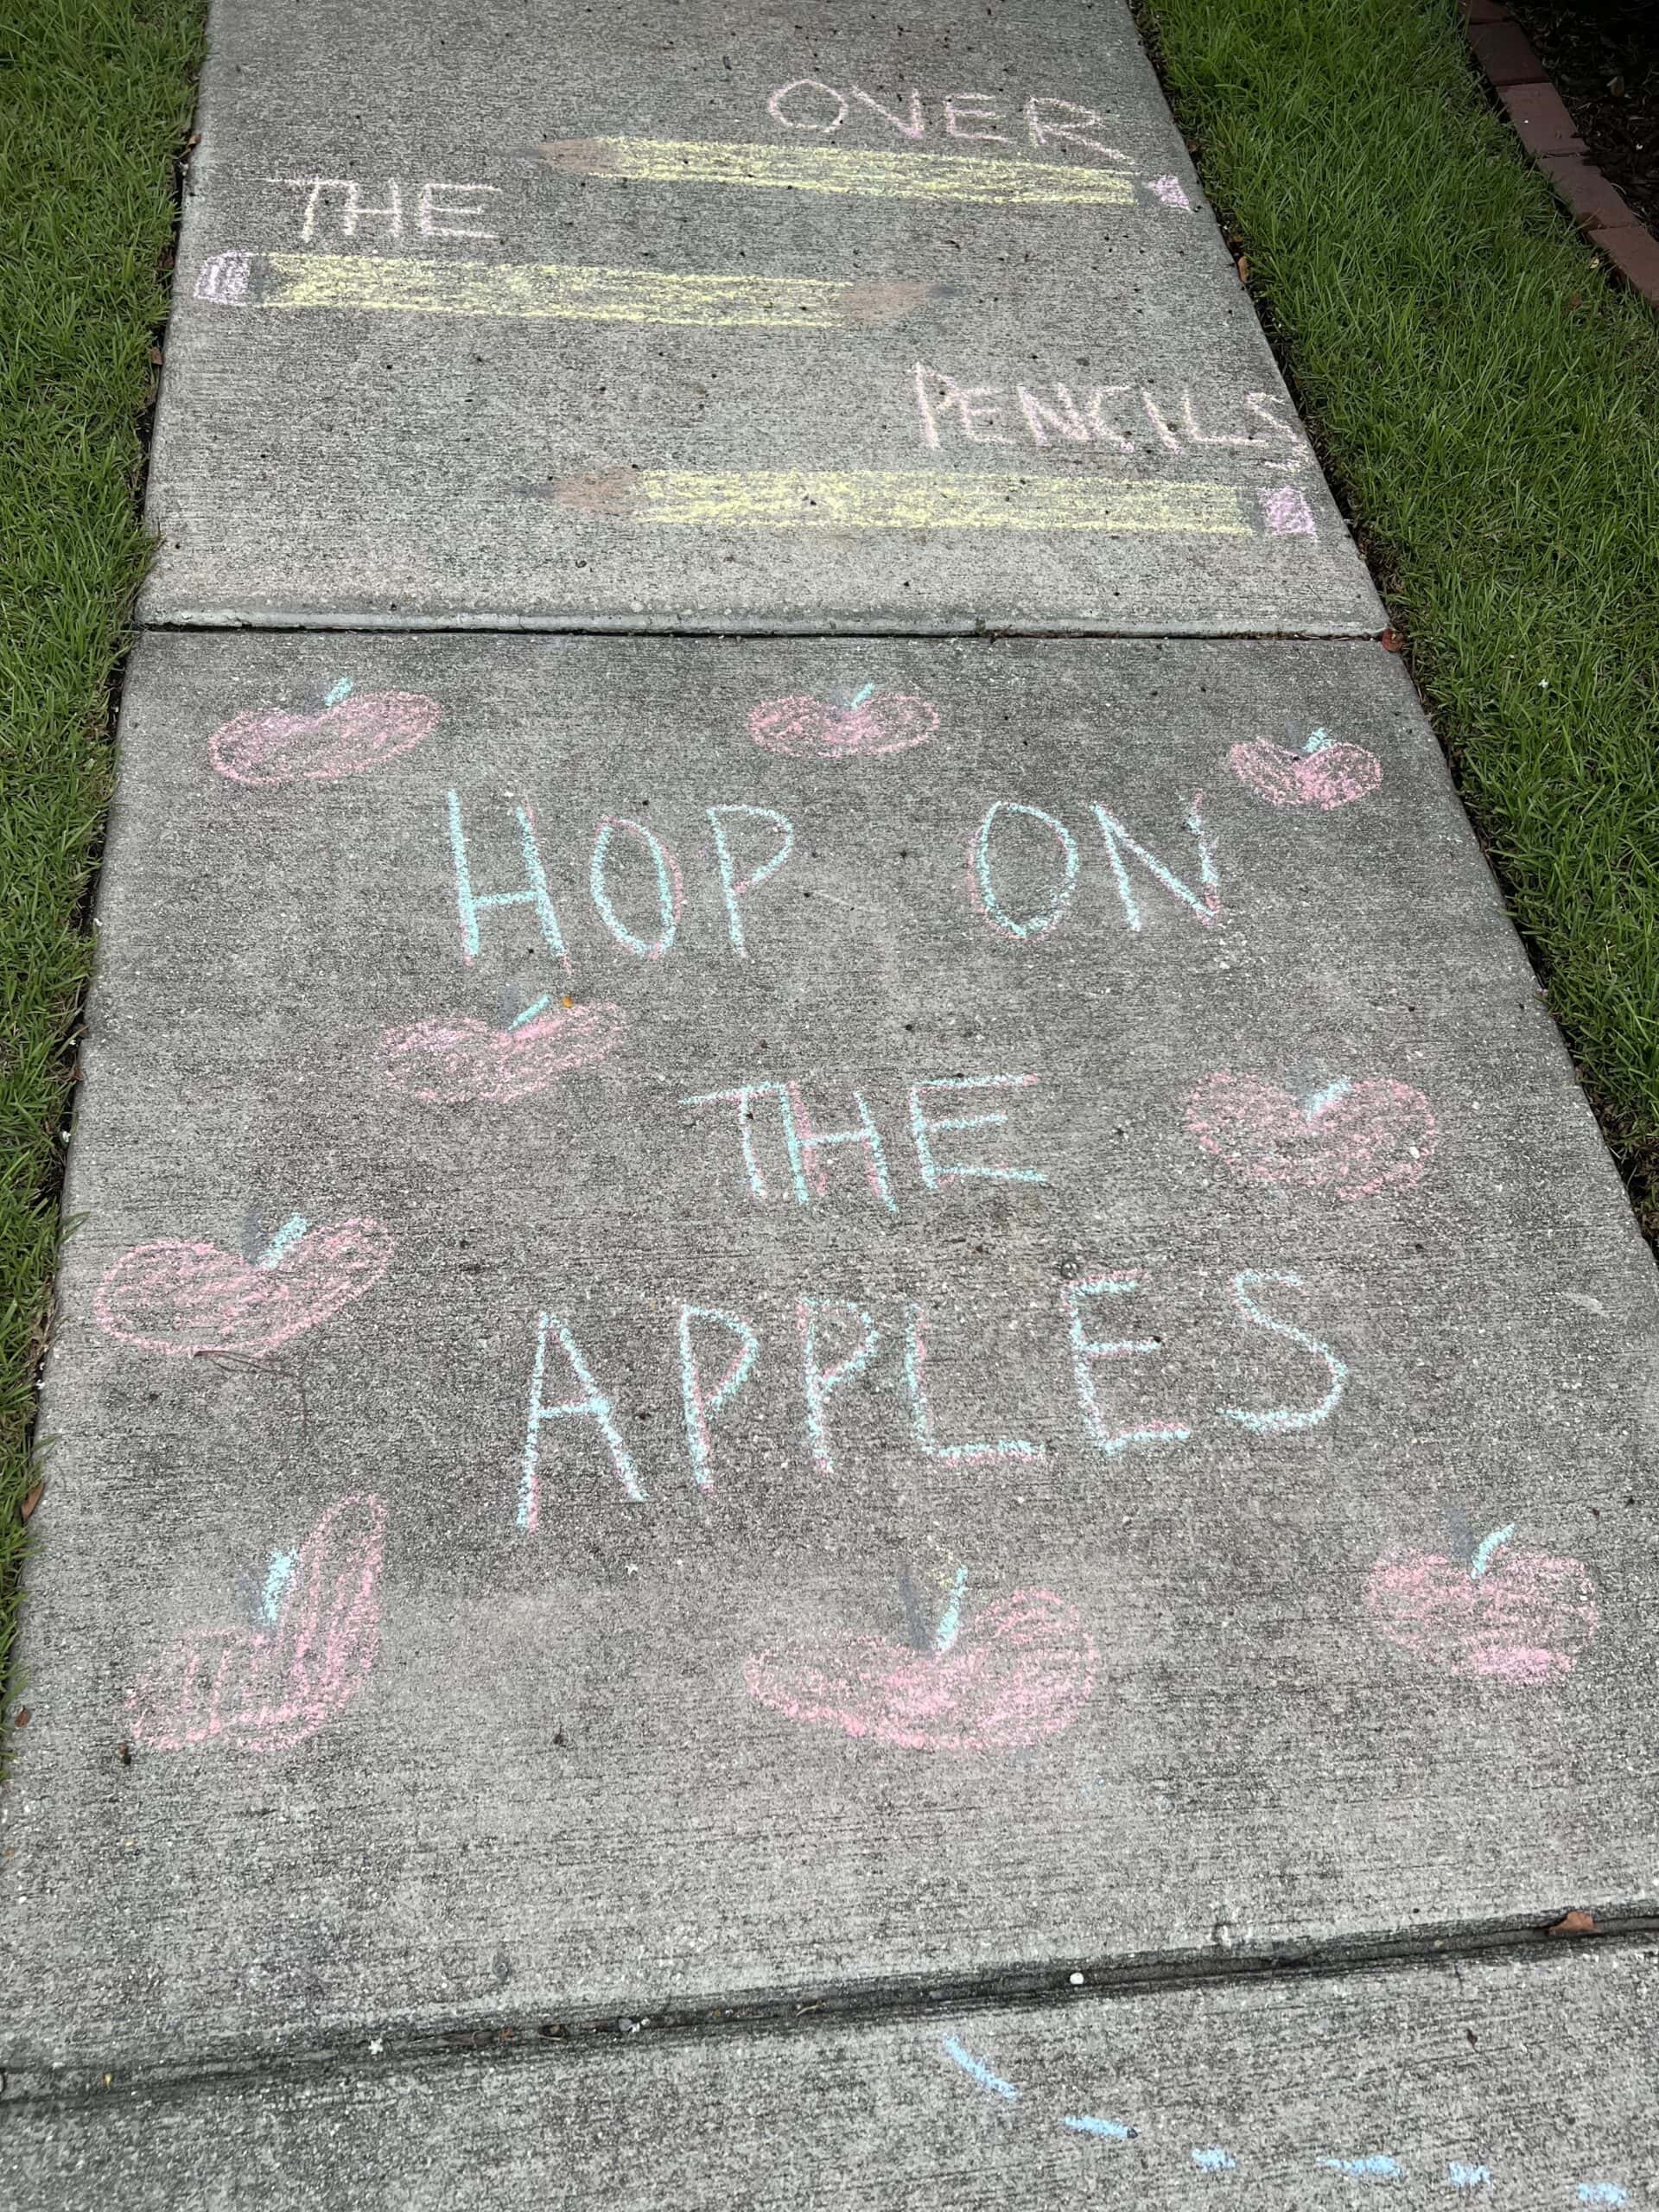 OVER
THE
PENCILS
HOP ON
THE
APPLES